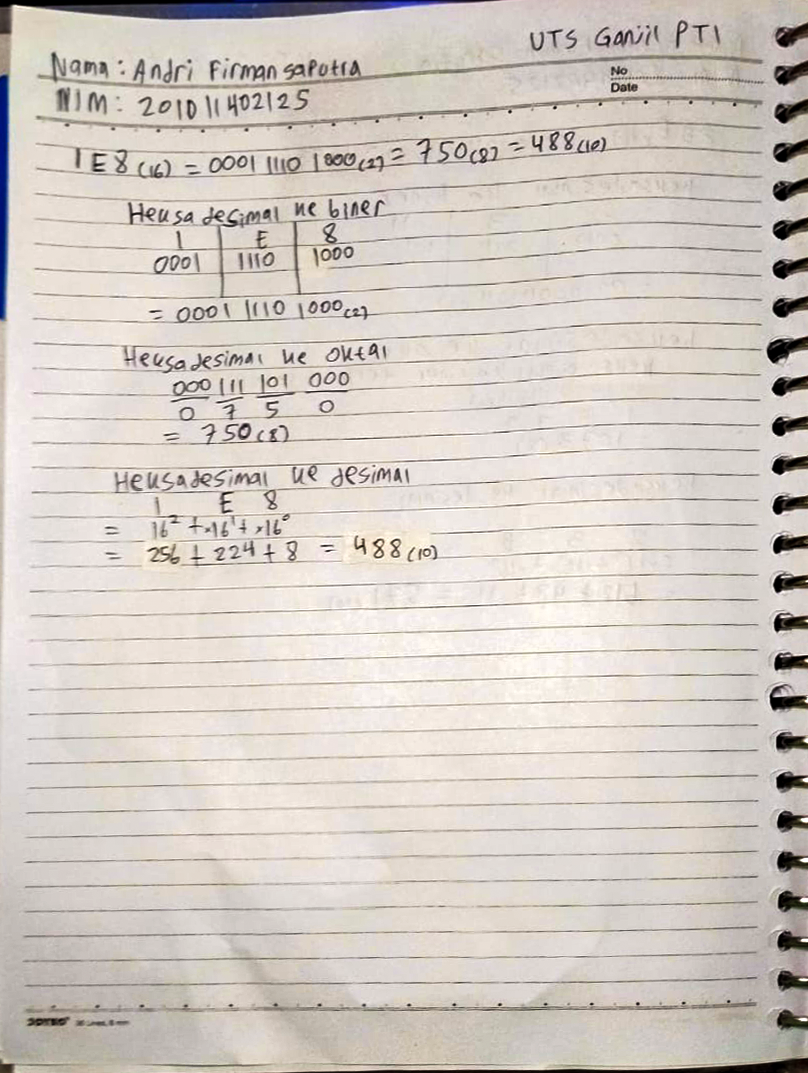 UTS Ganjil PTI
Nama : Andri Firman saputra
No
NIM : 201011402125
Date
1E8(16) = 0001 1110 1000(2) = 750(8) = 488(10)
Heksa desimal ke biner
1 E 8
0001 1110 1000
= 0001 1110 1000(2)
Heksadesimal ke oktal
000 111 101 000
0 7 5 0
= 750(8)
Heksadesimal ke desimal
1 E 8
= 16² + ×16¹ + ×16⁰
= 256 + 224 + 8 = 488(10)